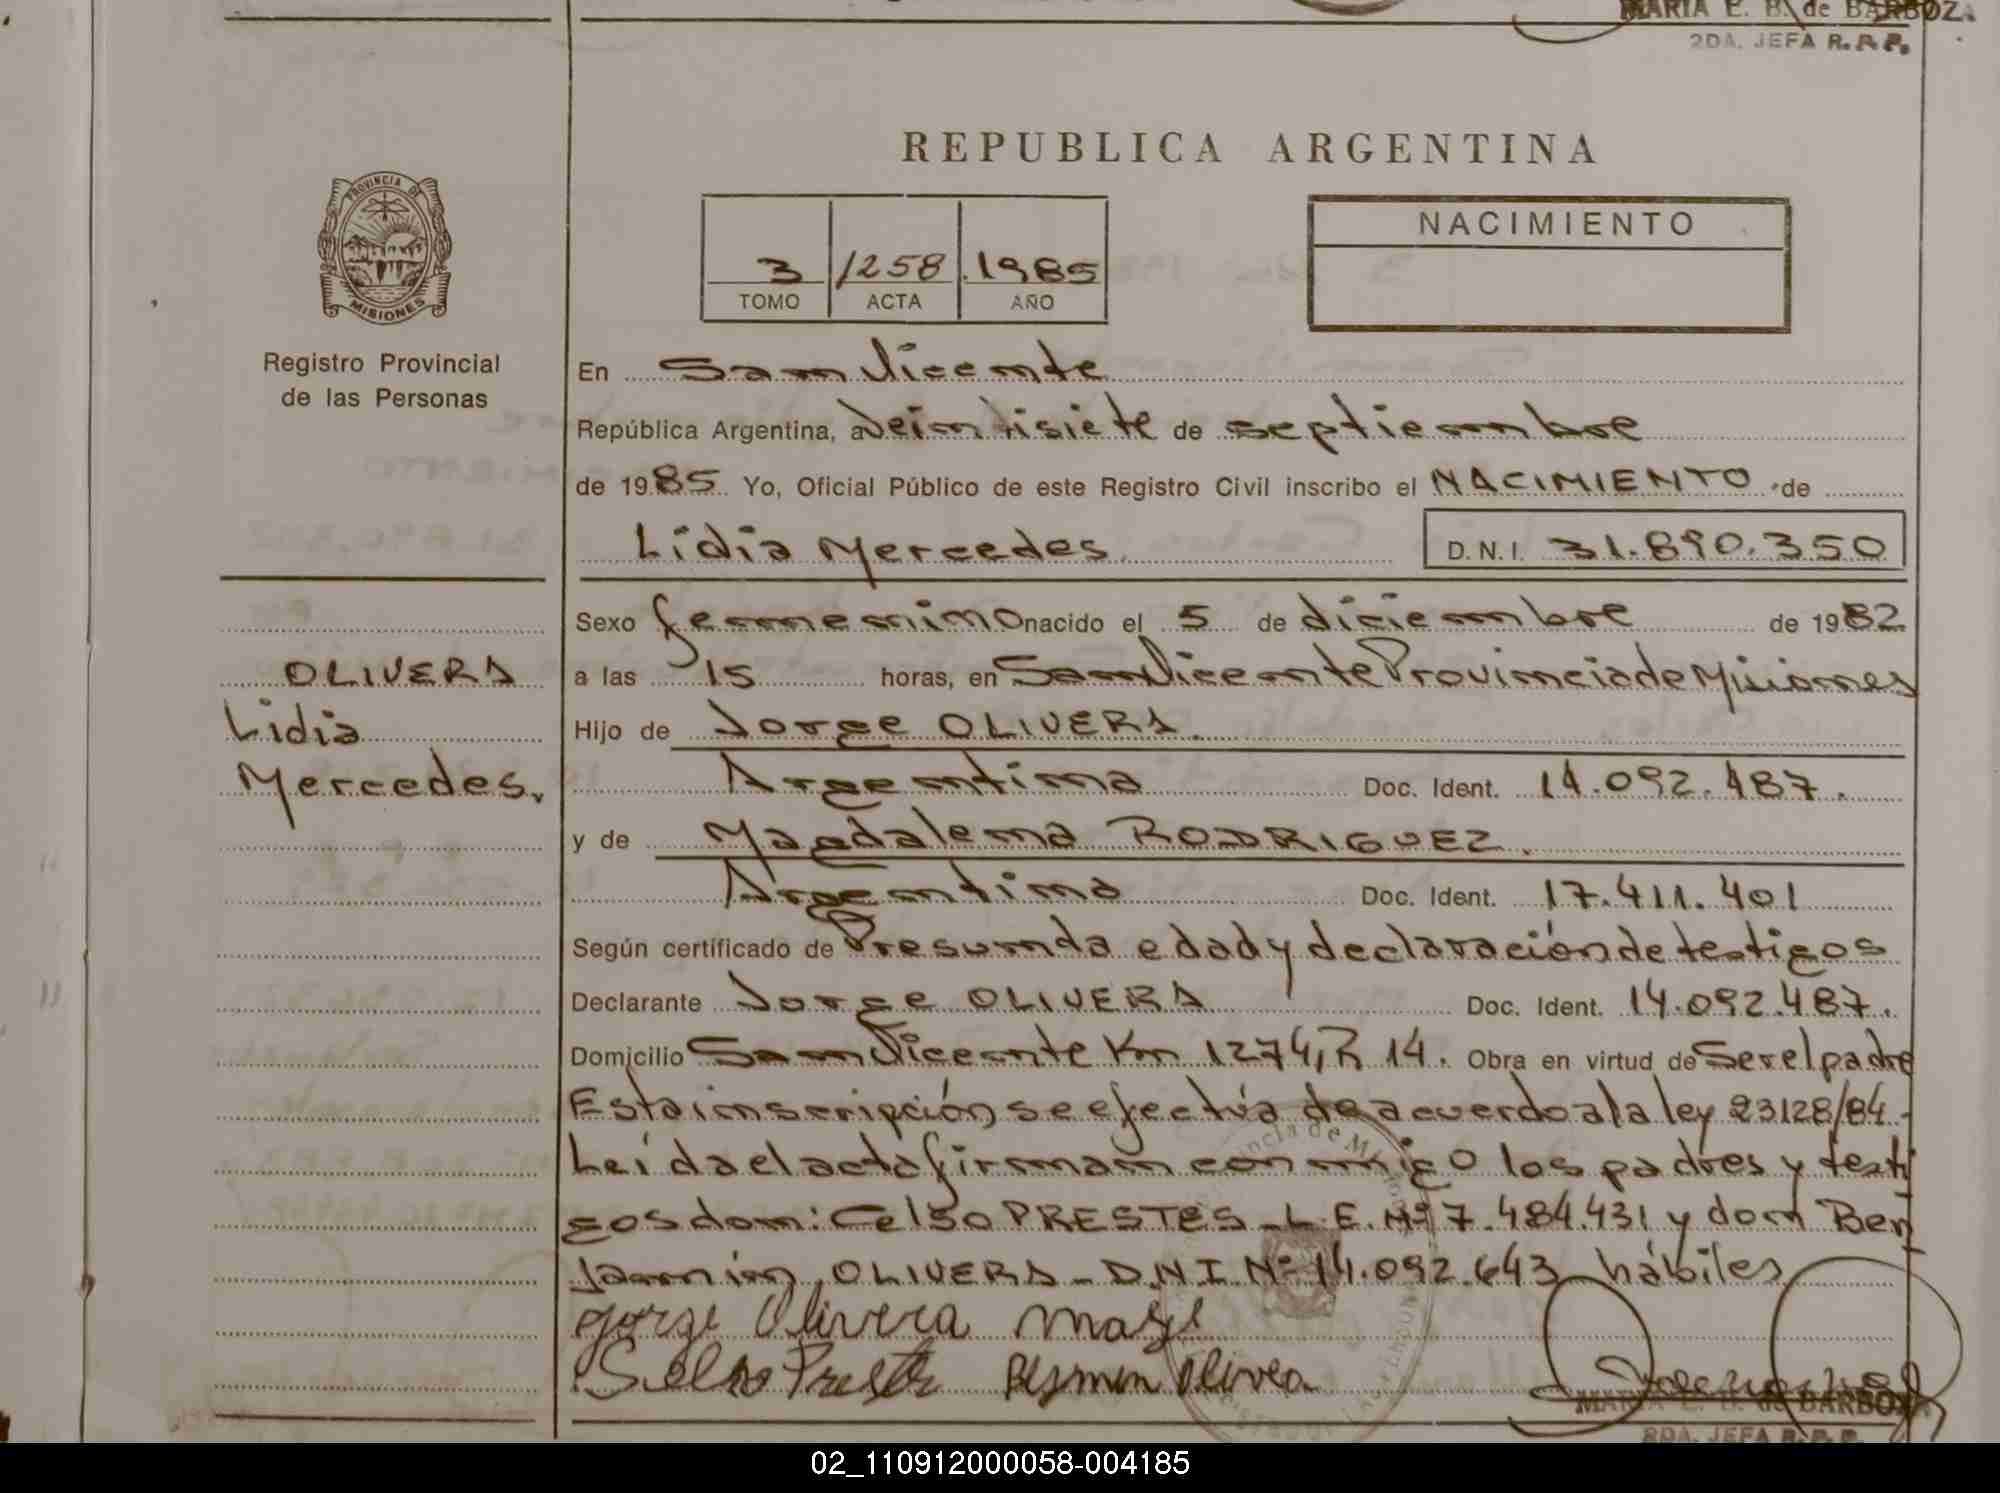 MARIA E. B. de BARBOZA.
2DA. JEFA R.P.P.
REPUBLICA ARGENTINA
PROVINCIA DE
MISIONES
Registro Provincial
de las Personas
3 1258 1985
TOMO ACTA AÑO
NACIMIENTO
En San Vicente
República Argentina, a Veintisiete de septiembre
de 1985 Yo, Oficial Público de este Registro Civil inscribo el NACIMIENTO de
Lidia Mercedes. D.N.I. 31.890.350
OLIVERA
Lidia
Mercedes.
Sexo femenino nacido el 5 de diciembre de 1982
a las 15 horas, en San Vicente Provincia de Misiones
Hijo de Jorge OLIVERA.
Argentina Doc. Ident. 14.092.487.
y de Magdalena RODRIGUEZ.
Argentina Doc. Ident. 17.411.401
Según certificado de Presunda edad y declaración de testigos
Declarante Jorge OLIVERA Doc. Ident. 14.092.487.
Domicilio San Vicente Km 1274, R 14. Obra en virtud de Ser el padre
Esta inscripción se efectúa de acuerdo a la ley 23128/84.-
Leída el acta firman conmigo los padres y testi
gos don: Celso PRESTES - L.E. Nº 7.484.431 y don Ben
jamin OLIVERA - D.N.I. Nº 14.092.643 hábiles
jorge Olivera
Olivera
MARIA E. B. de BARBOZA
2DA. JEFA R.P.P.
02_110912000058-004185